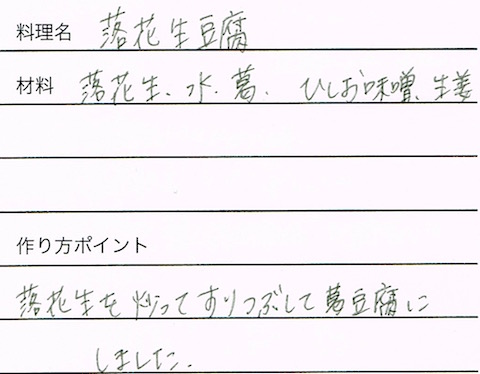 料理名 落花生豆腐
材料 落花生、水、葛、ひしお味噌、生姜
作り方ポイント
落花生を炒ってすりつぶして葛豆腐に
しました.